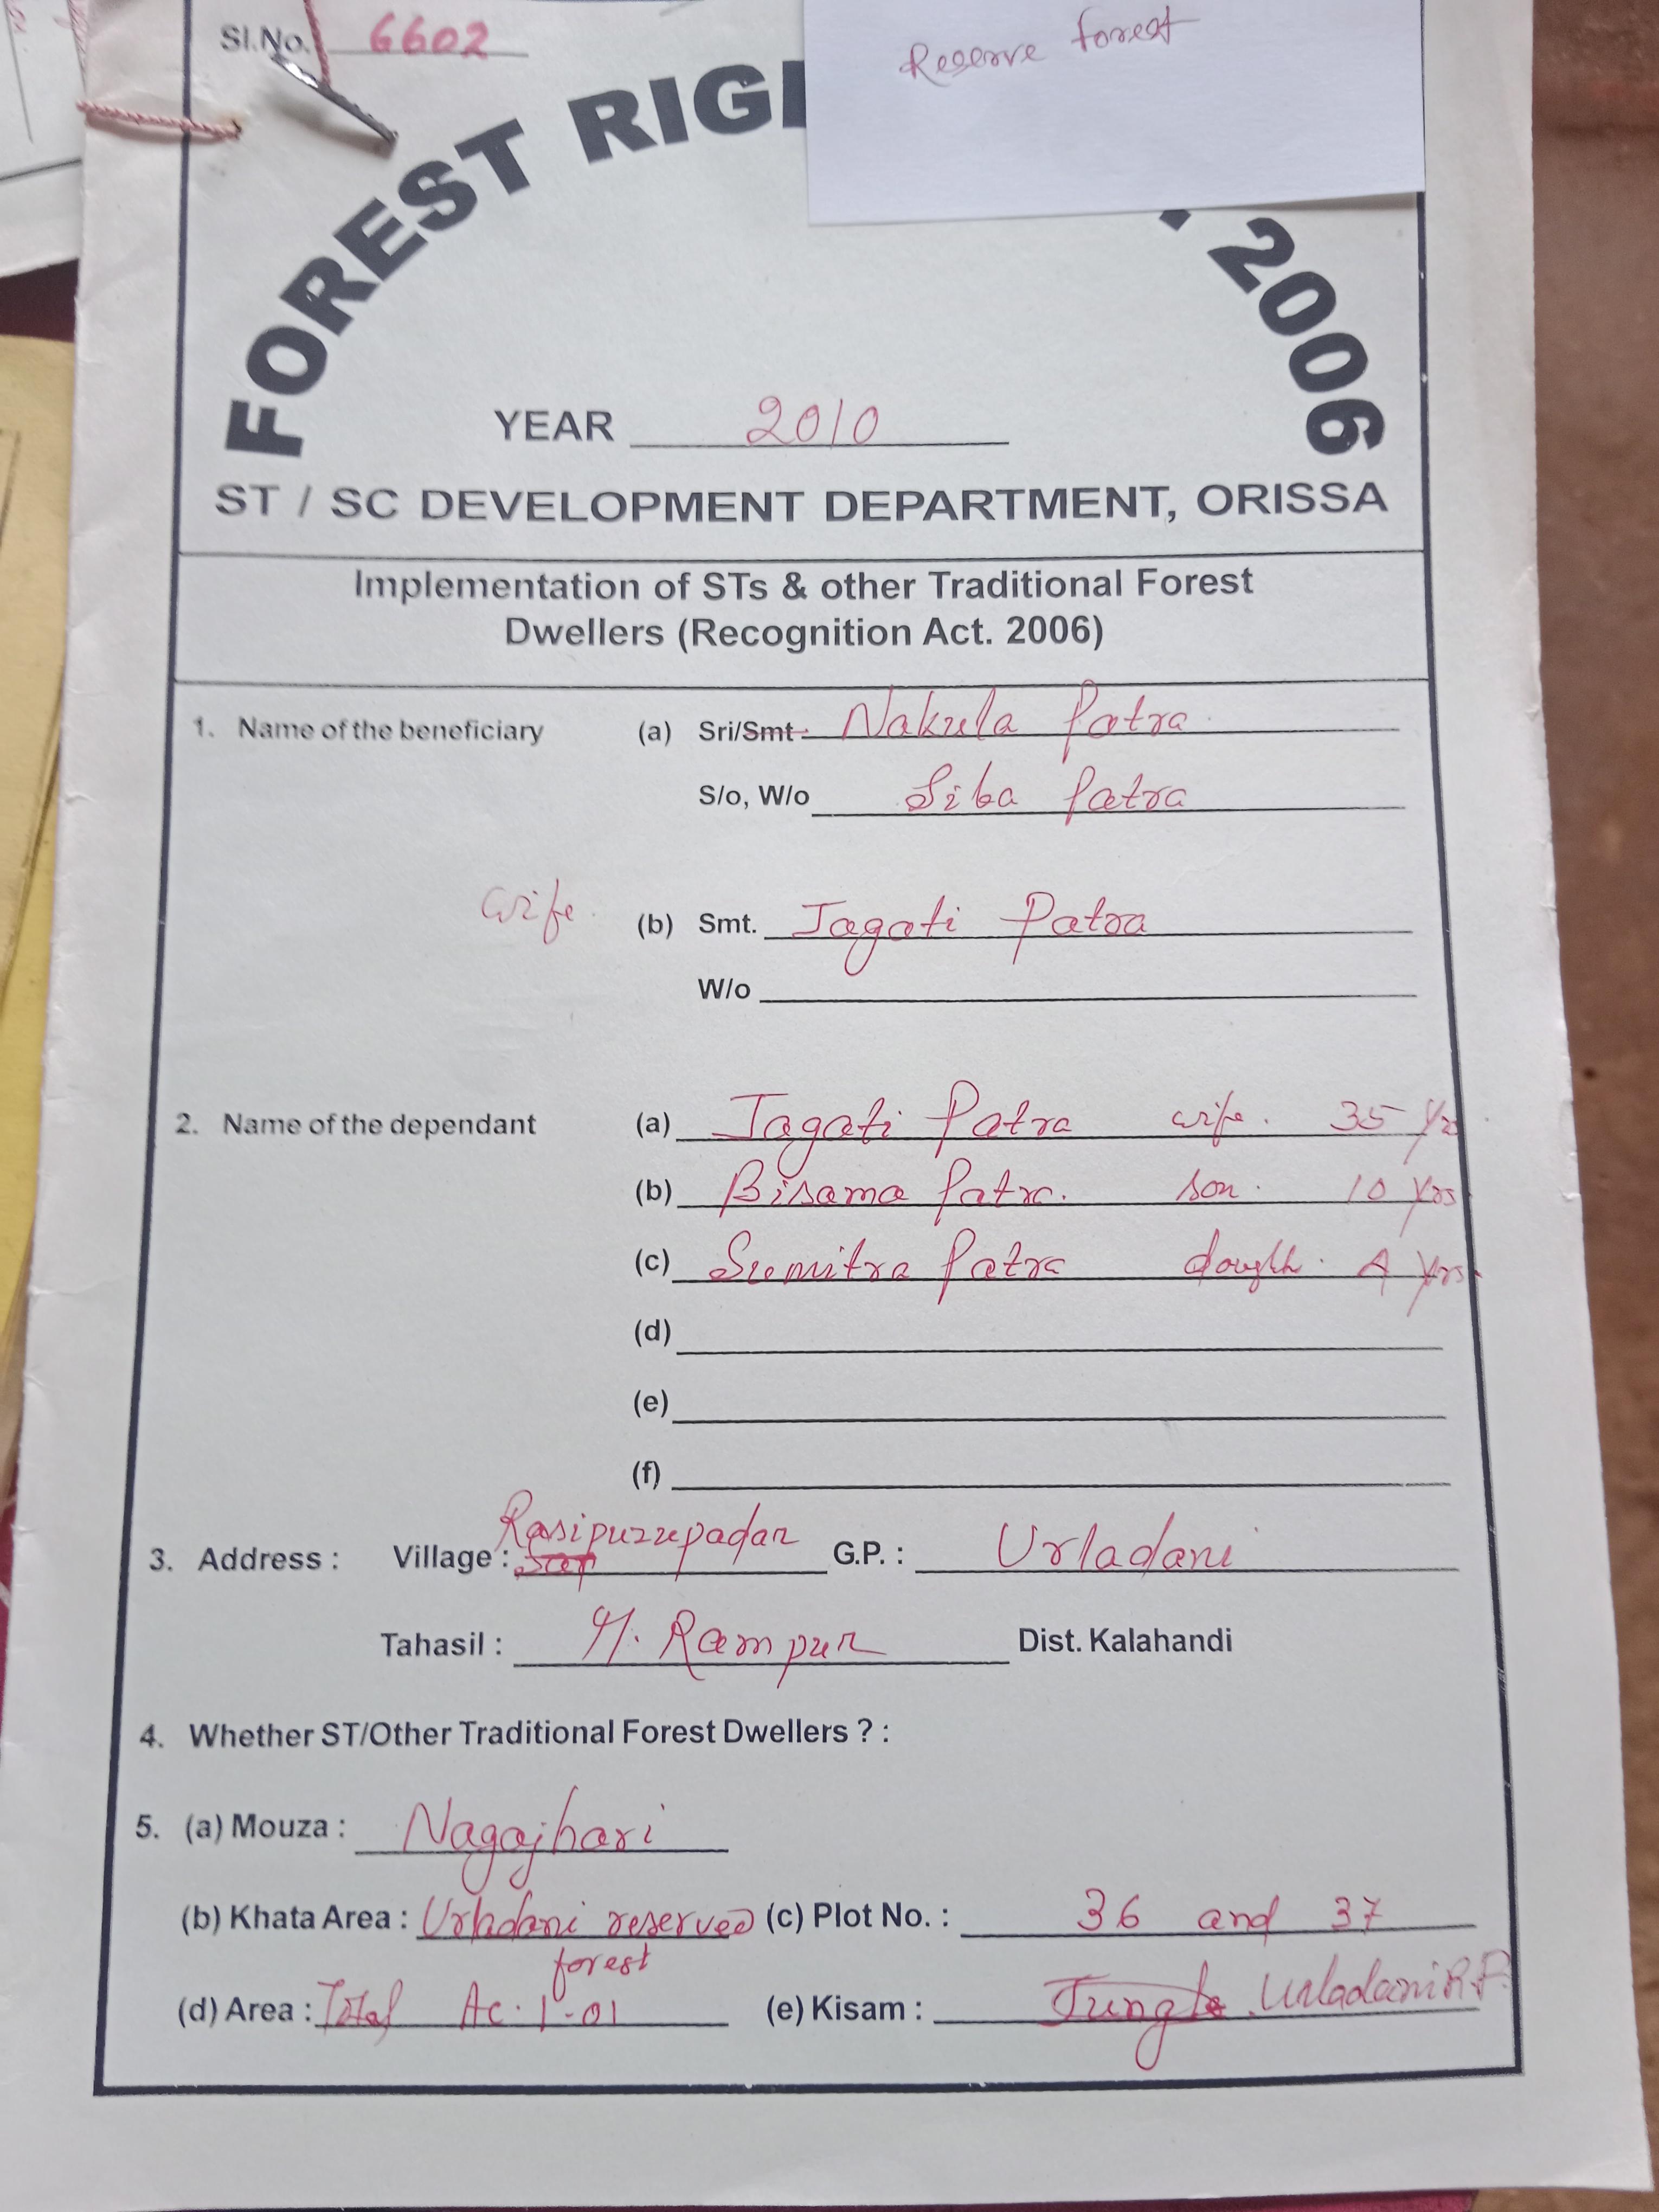 Sl.No. 6602
Reserve forest
FOREST RIG 2006
YEAR 2010
ST / SC DEVELOPMENT DEPARTMENT, ORISSA
Implementation of STs & other Traditional Forest
Dwellers (Recognition Act. 2006)
1. Name of the beneficiary (a) Sri/Smt Nakula Patra
S/o, W/o Siba Patra
wife. (b) Smt. Jagati Patra
W/o
2. Name of the dependant (a) Jagati Patra wife. 35 Yrs
(b) Bisama Patra. son. 10 Yrs
(c) Sumitra Patra daugh. 4 Yrs
(d)
(e)
(f)
3. Address : Village : Rasipurrupadar G.P. : Urladani
Tahasil : Rampur Dist. Kalahandi
4. Whether ST/Other Traditional Forest Dwellers ? :
5. (a) Mouza : Nagajhari
(b) Khata Area : Urladani reserved forest (c) Plot No. : 36 and 37
(d) Area : Total Ac. 1-01 (e) Kisam : Jungle Urladani R.F.